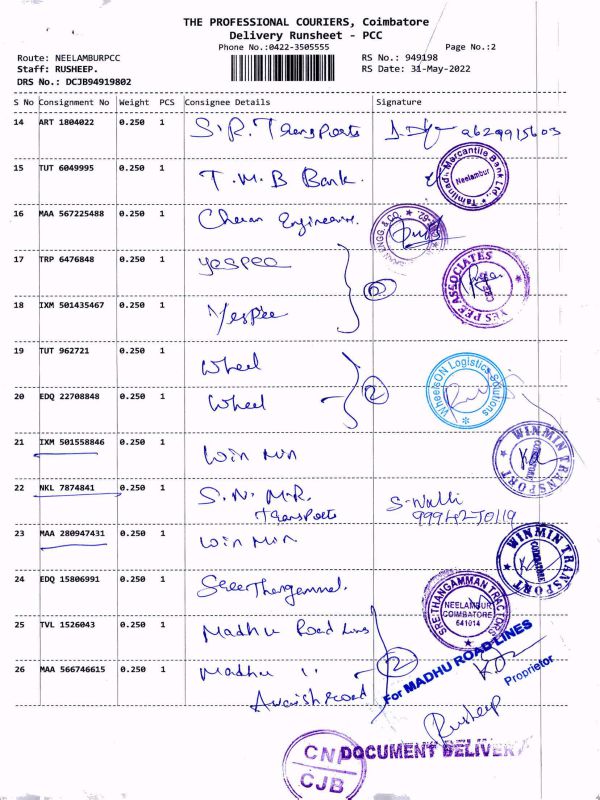 THE PROFESSIONAL COURIERS, Coimbatore
Delivery Runsheet - PCC
Phone No.:0422-3505555
Page No.:2
Route: NEELAMBURPCC
RS No.: 949198
Staff: RUSHEEP.
RS Date: 31-May-2022
DRS No.: DCJB94919802
S No Consignment No Weight PCS Consignee Details Signature
14 ART 1804022 0.250 1 S.R. Transports 9629915603
15 TUT 6049995 0.250 1 T.M.B Bank. Tamilnad Mercantile Bank Ltd Neelambur
16 MAA 567225488 0.250 1 Cheran Engineers. ENGG & CO.
17 TRP 6476848 0.250 1 Yespee
YES PEE ASSOCIATES
18 IXM 501435467 0.250 1 Yespee
19 TUT 962721 0.250 1 Wheel
WheelsON Logistics Solutions
20 EDQ 22708848 0.250 1 Wheel 2
21 IXM 501558846 0.250 1 Win Min WINMIN TRANSPORT
22 NKL 7874841 0.250 1 S.N.M.R. Transports
23 MAA 280947431 0.250 1 Win Min WINMIN TRANSPORT COIMBATORE
24 EDQ 15806991 0.250 1 SREE THANGAMMAN TRACTORS NEELAMBUR COIMBATORE 641014
25 TVL 1526043 0.250 1 Madhu Road Lines 2
For MADHU ROAD LINES
Proprietor
26 MAA 566746615 0.250 1 Madhu "
Rusheep
DOCUMENT DELIVERY
CNP
CJB